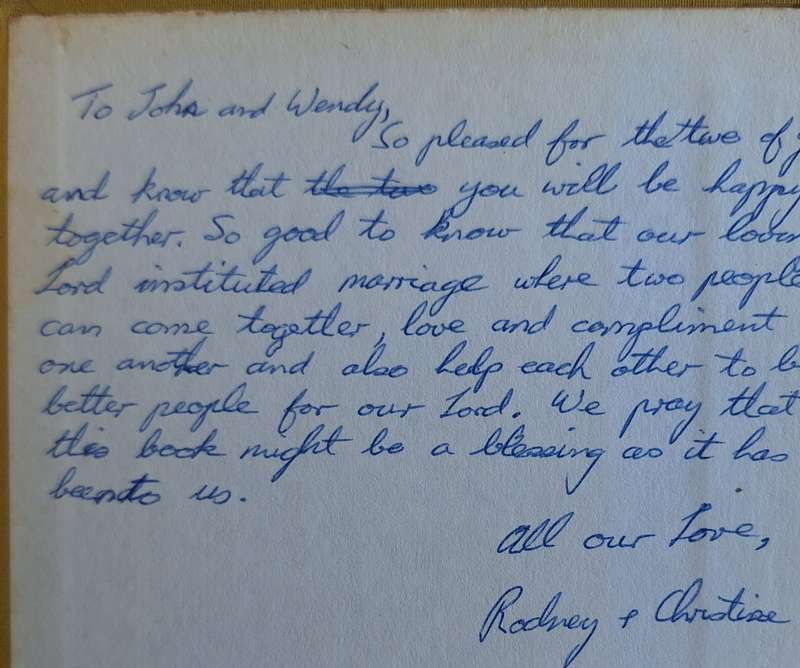 To John and Wendy,
So pleased for the two of
and know that the two you will be happy
together. So good to know that our
Lord instituted marriage where two people
can come together, love and compliment
one another and also help each other to
better people for our Lord. We pray that
this book might be a blessing as it has
been to us.
All our Love,
Rodney + Christine